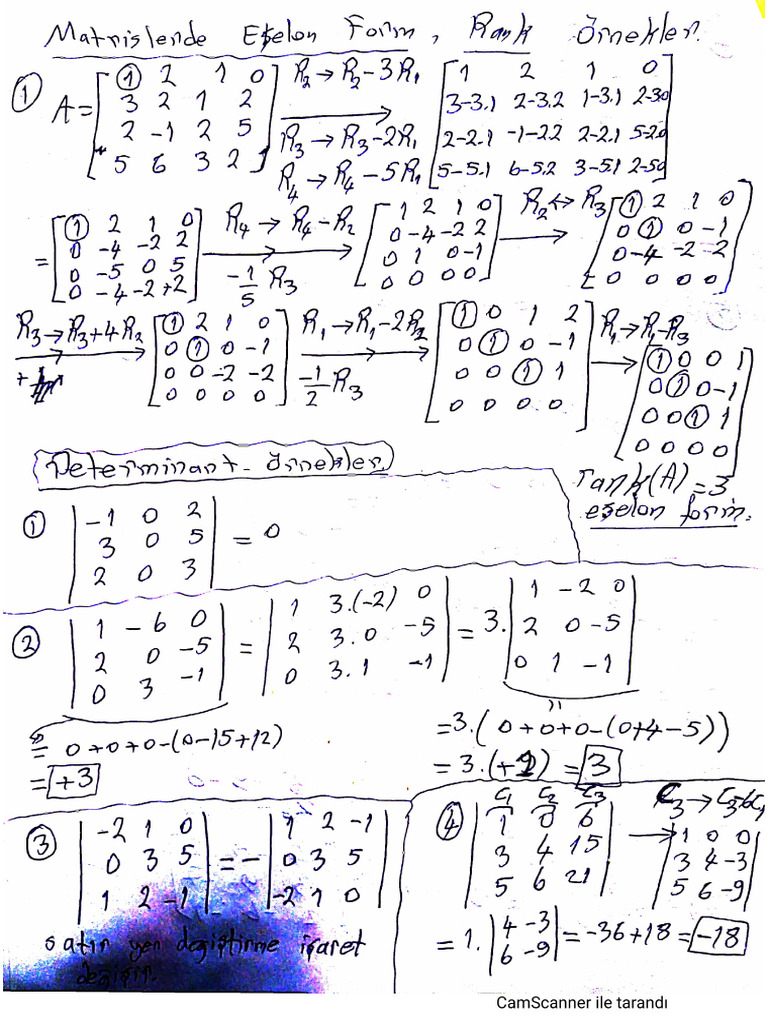 Matrislerde Eşelon Form, Rank Örnekler.
① A = [1 2 1 0; 3 2 1 2; 2 -1 2 5; 5 6 3 2] R2 → R2-3R1, R3 → R3-2R1, R4 → R4-5R1 [1 2 1 0; 3-3.1 2-3.2 1-3.1 2-3.0; 2-2.1 -1-2.2 2-2.1 5-2.0; 5-5.1 6-5.2 3-5.1 2-5.0]
= [1 2 1 0; 0 -4 -2 2; 0 -5 0 5; 0 -4 -2 +2] R4 → R4-R2, -1/5 R3 → [1 2 1 0; 0 -4 -2 2; 0 1 0 -1; 0 0 0 0] R2 ↔ R3 → [1 2 1 0; 0 1 0 -1; 0 -4 -2 -2; 0 0 0 0]
R3 → R3+4R2 → [1 2 1 0; 0 1 0 -1; 0 0 -2 -2; 0 0 0 0] R1 → R1-2R2, -1/2 R3 → [1 0 1 2; 0 1 0 -1; 0 0 1 1; 0 0 0 0] R1 → R1-R3 → [1 0 0 1; 0 1 0 -1; 0 0 1 1; 0 0 0 0]
rank(A) = 3
eşelon form.
Determinant örnekler.
① |-1 0 2; 3 0 5; 2 0 3| = 0
② |1 -6 0; 2 0 -5; 0 3 -1| = |1 3.(-2) 0; 2 3.0 -5; 0 3.1 -1| = 3.|1 -2 0; 2 0 -5; 0 1 -1|
= 0+0+0-(0-15+12)
= +3
= 3.(0+0+0-(0+4-5))
= 3.(+1) = 3
③ |-2 1 0; 0 3 5; 1 2 -1| = -|1 2 -1; 0 3 5; -2 1 0|
satır yer değiştirme işaret
değişir.
④ C1 C2 C3 |1 0 6; 3 4 15; 5 6 21| C3 → C3-6C1 → |1 0 0; 3 4 -3; 5 6 -9|
= 1.|4 -3; 6 -9| = -36+18 = -18
CamScanner ile tarandı